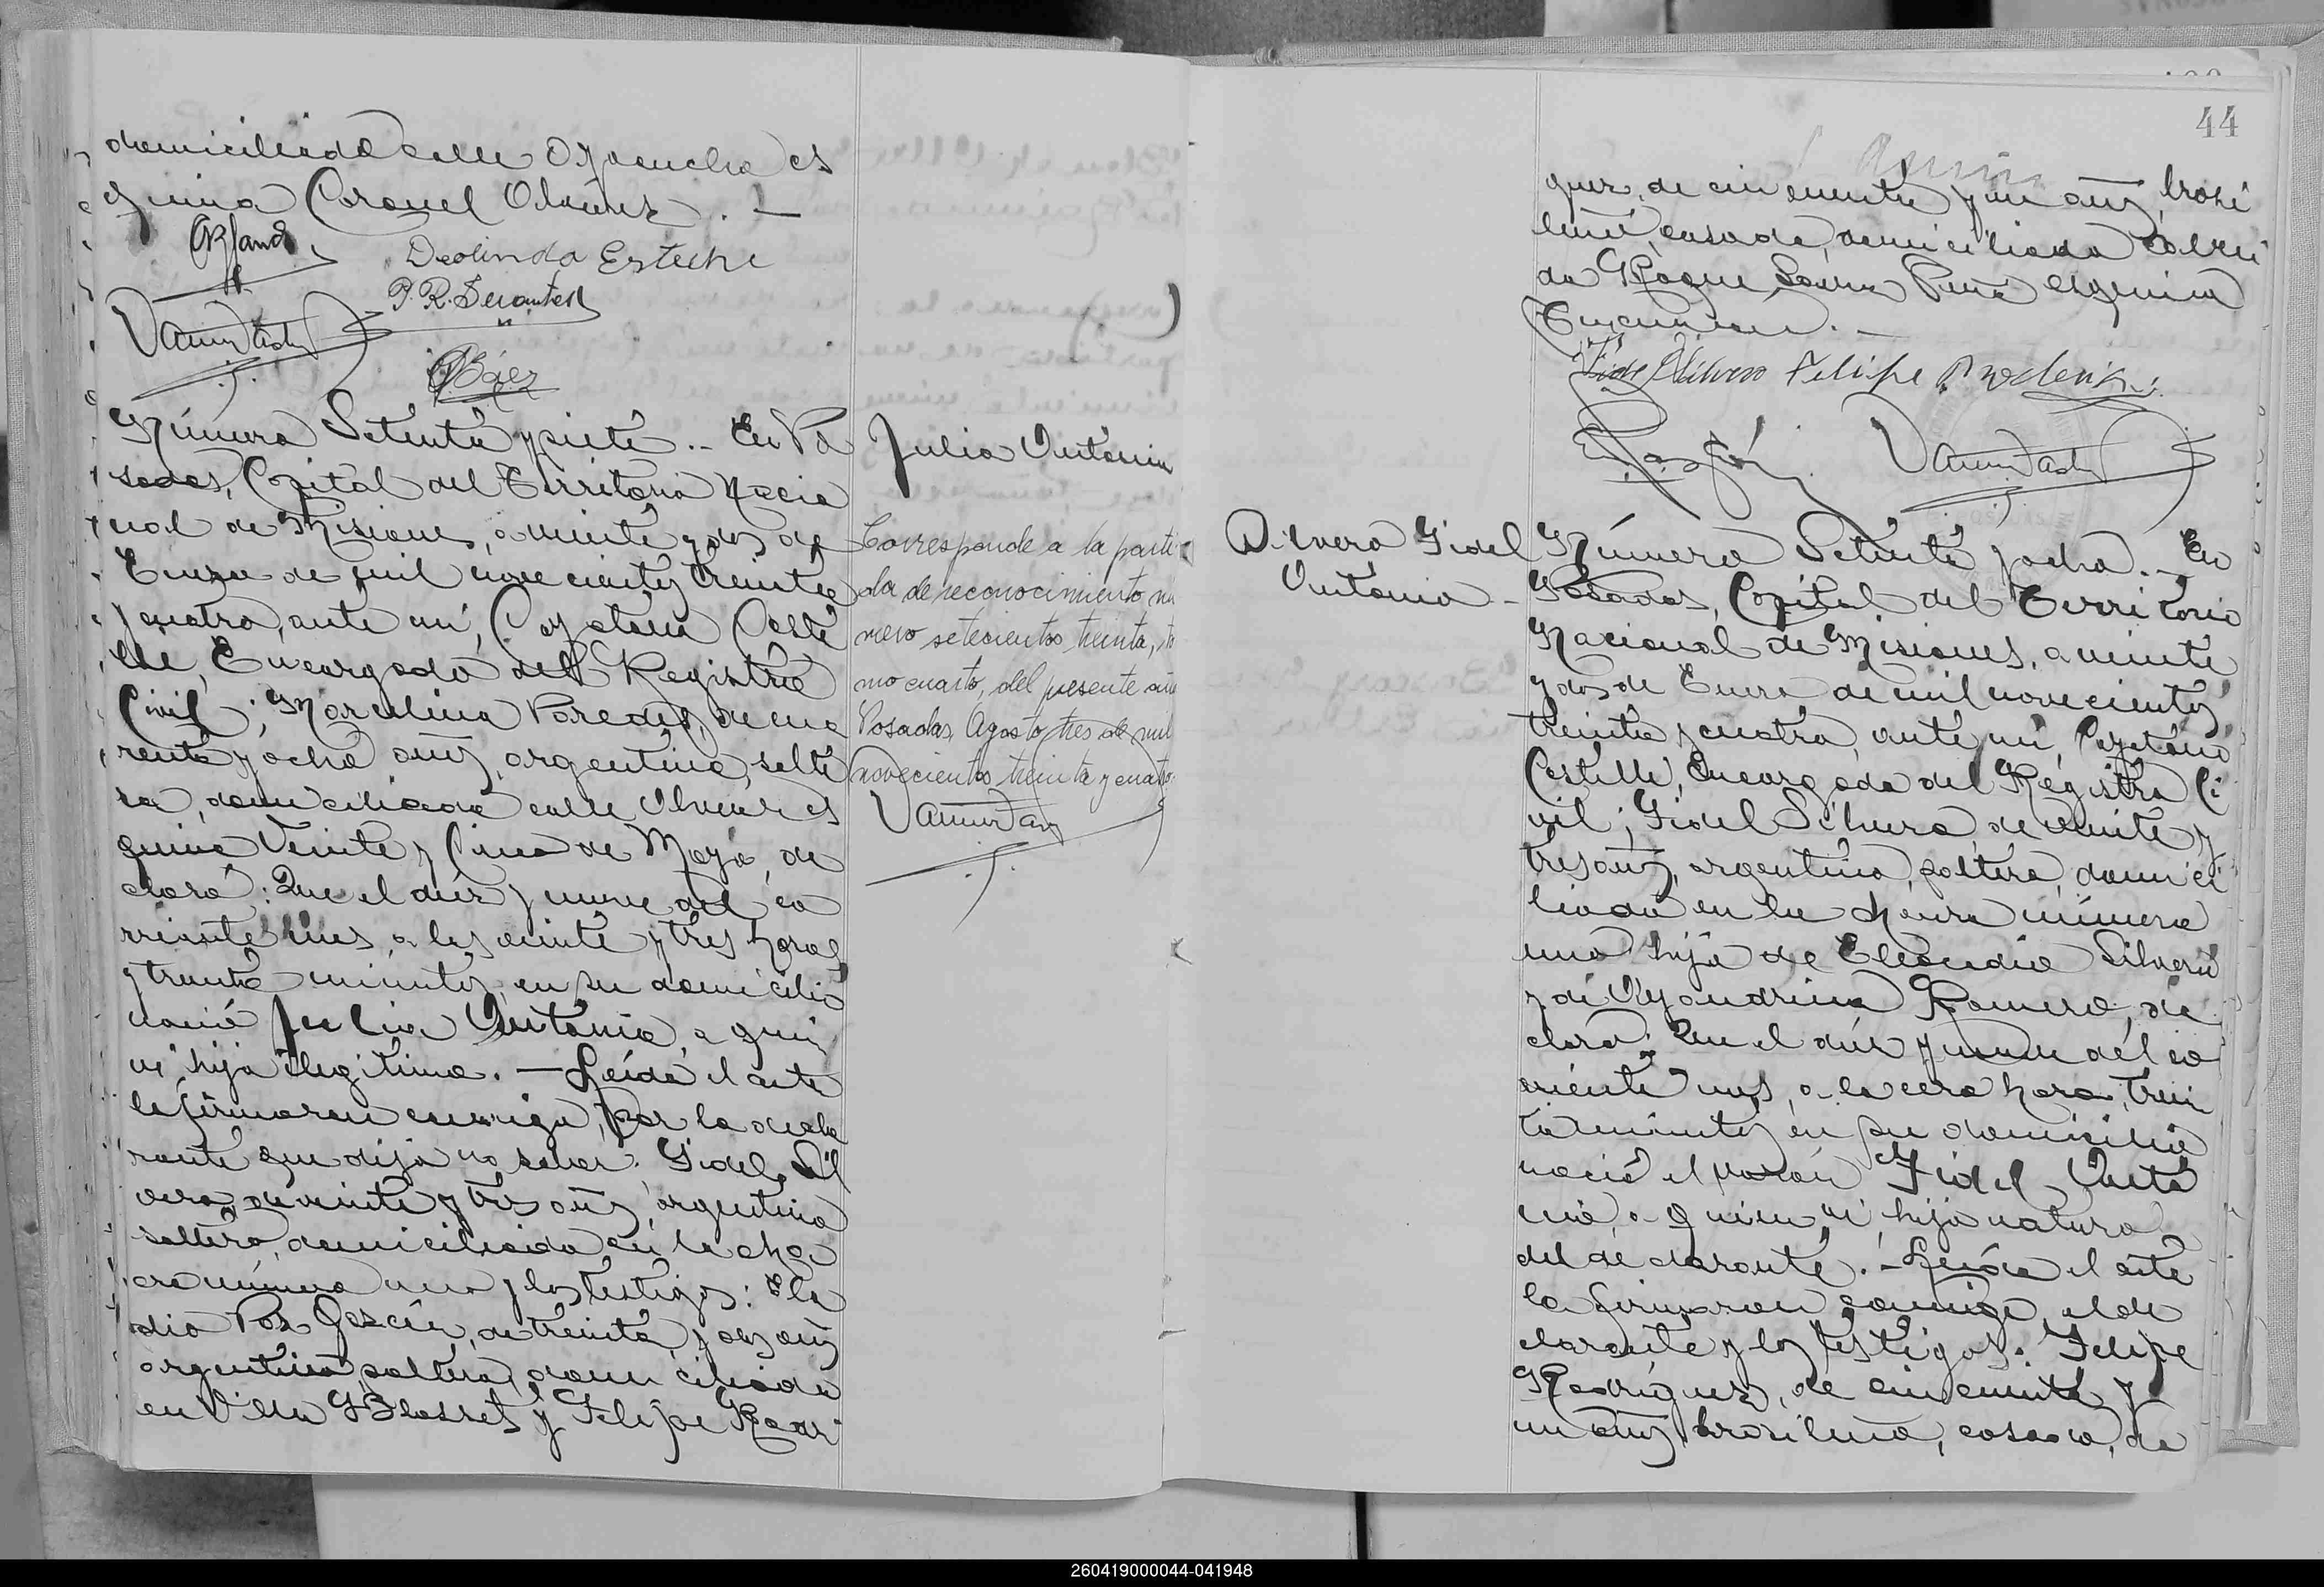 domiciliado calle Ayacucho es
quina Coronel Alvarez . —
Deolinda Esteche
P. R. Devantes
Báez
Número Setenta y siete .- En Po
sadas, Capital del Territorio Nacio
nal de Misiones, a veinte y dos de
Enero de mil novecientos treinta
y cuatro, ante mi, Cayetano Caste
lli, Encargado del Registro
Civil; Marcelina Paredes, de cua
renta y ocho años, argentina, solte
ra, domiciliada calle Alvear es
quina Veinte y Cinco de Mayo, de
claró: Que el diez y nueve del co
rriente mes, a las veinte y tres horas
y treinta minutos, en su domicilio
nació Julia Antonia, a quien
hija ilegítima. — Leída el acta
la firmaron conmigo, por la decla
rante que dijo no saber. Fidel Sil
vero, de veinte y tres años, argentino
soltero, domiciliado en la cha
cra número uno y los testigos: Ela
dio Pos Gascín, de treinta y dos años
argentino, soltero, domiciliado
en Villa Blosset y Felipe Rodri
Julia Antonia
Corresponde a la parti
da de reconocimiento nú
mero setecientos treinta, to
mo cuarto, del presente año
Posadas, Agosto tres de mil
novecientos treinta y cuatro.
44
guez, de cincuenta y un años, brasi
leño, casado, domiciliado Aveni
da Roque Saenz Peña esquina
Encarnacion. —
Fidel Silvero Felipe Rodriguez
Silvero Fidel
Antonio -
Número Setenta y ocho .- En
Posadas, Capital del Territorio
Nacional de Misiones, a veinte
y dos de Enero de mil novecientos
treinta y cuatro, ante mi, Cayetano
Castelli, Encargado del Registro Ci
vil; Fidel Silvero, de veinte y
tres años, argentino, soltero, domici
liado en la chacra número
uno hijo de Eleodio Silvero
y de Alejandrina Romero, de
claró: Que el diez y nueve del co
rriente mes, a la cero hora, trein
ta minutos en su domicilio
nació el varón Fidel Anto
nio, a quien hijo natural
del declarante. - Leída el acta
la firmaron conmigo, el de
clarante y los testigos: Felipe
Rodríguez, de cincuenta y
un años, brasileño, casado, do
260419000044-041948